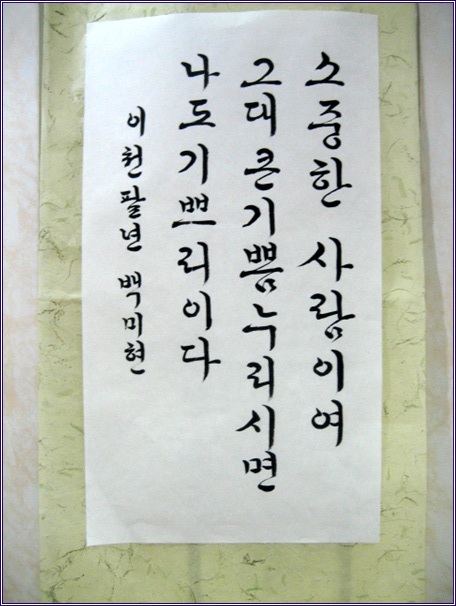 소중한 사람이여
그대 큰 기쁨 누리시면
나도 기쁘리이다
이천팔년 백미현